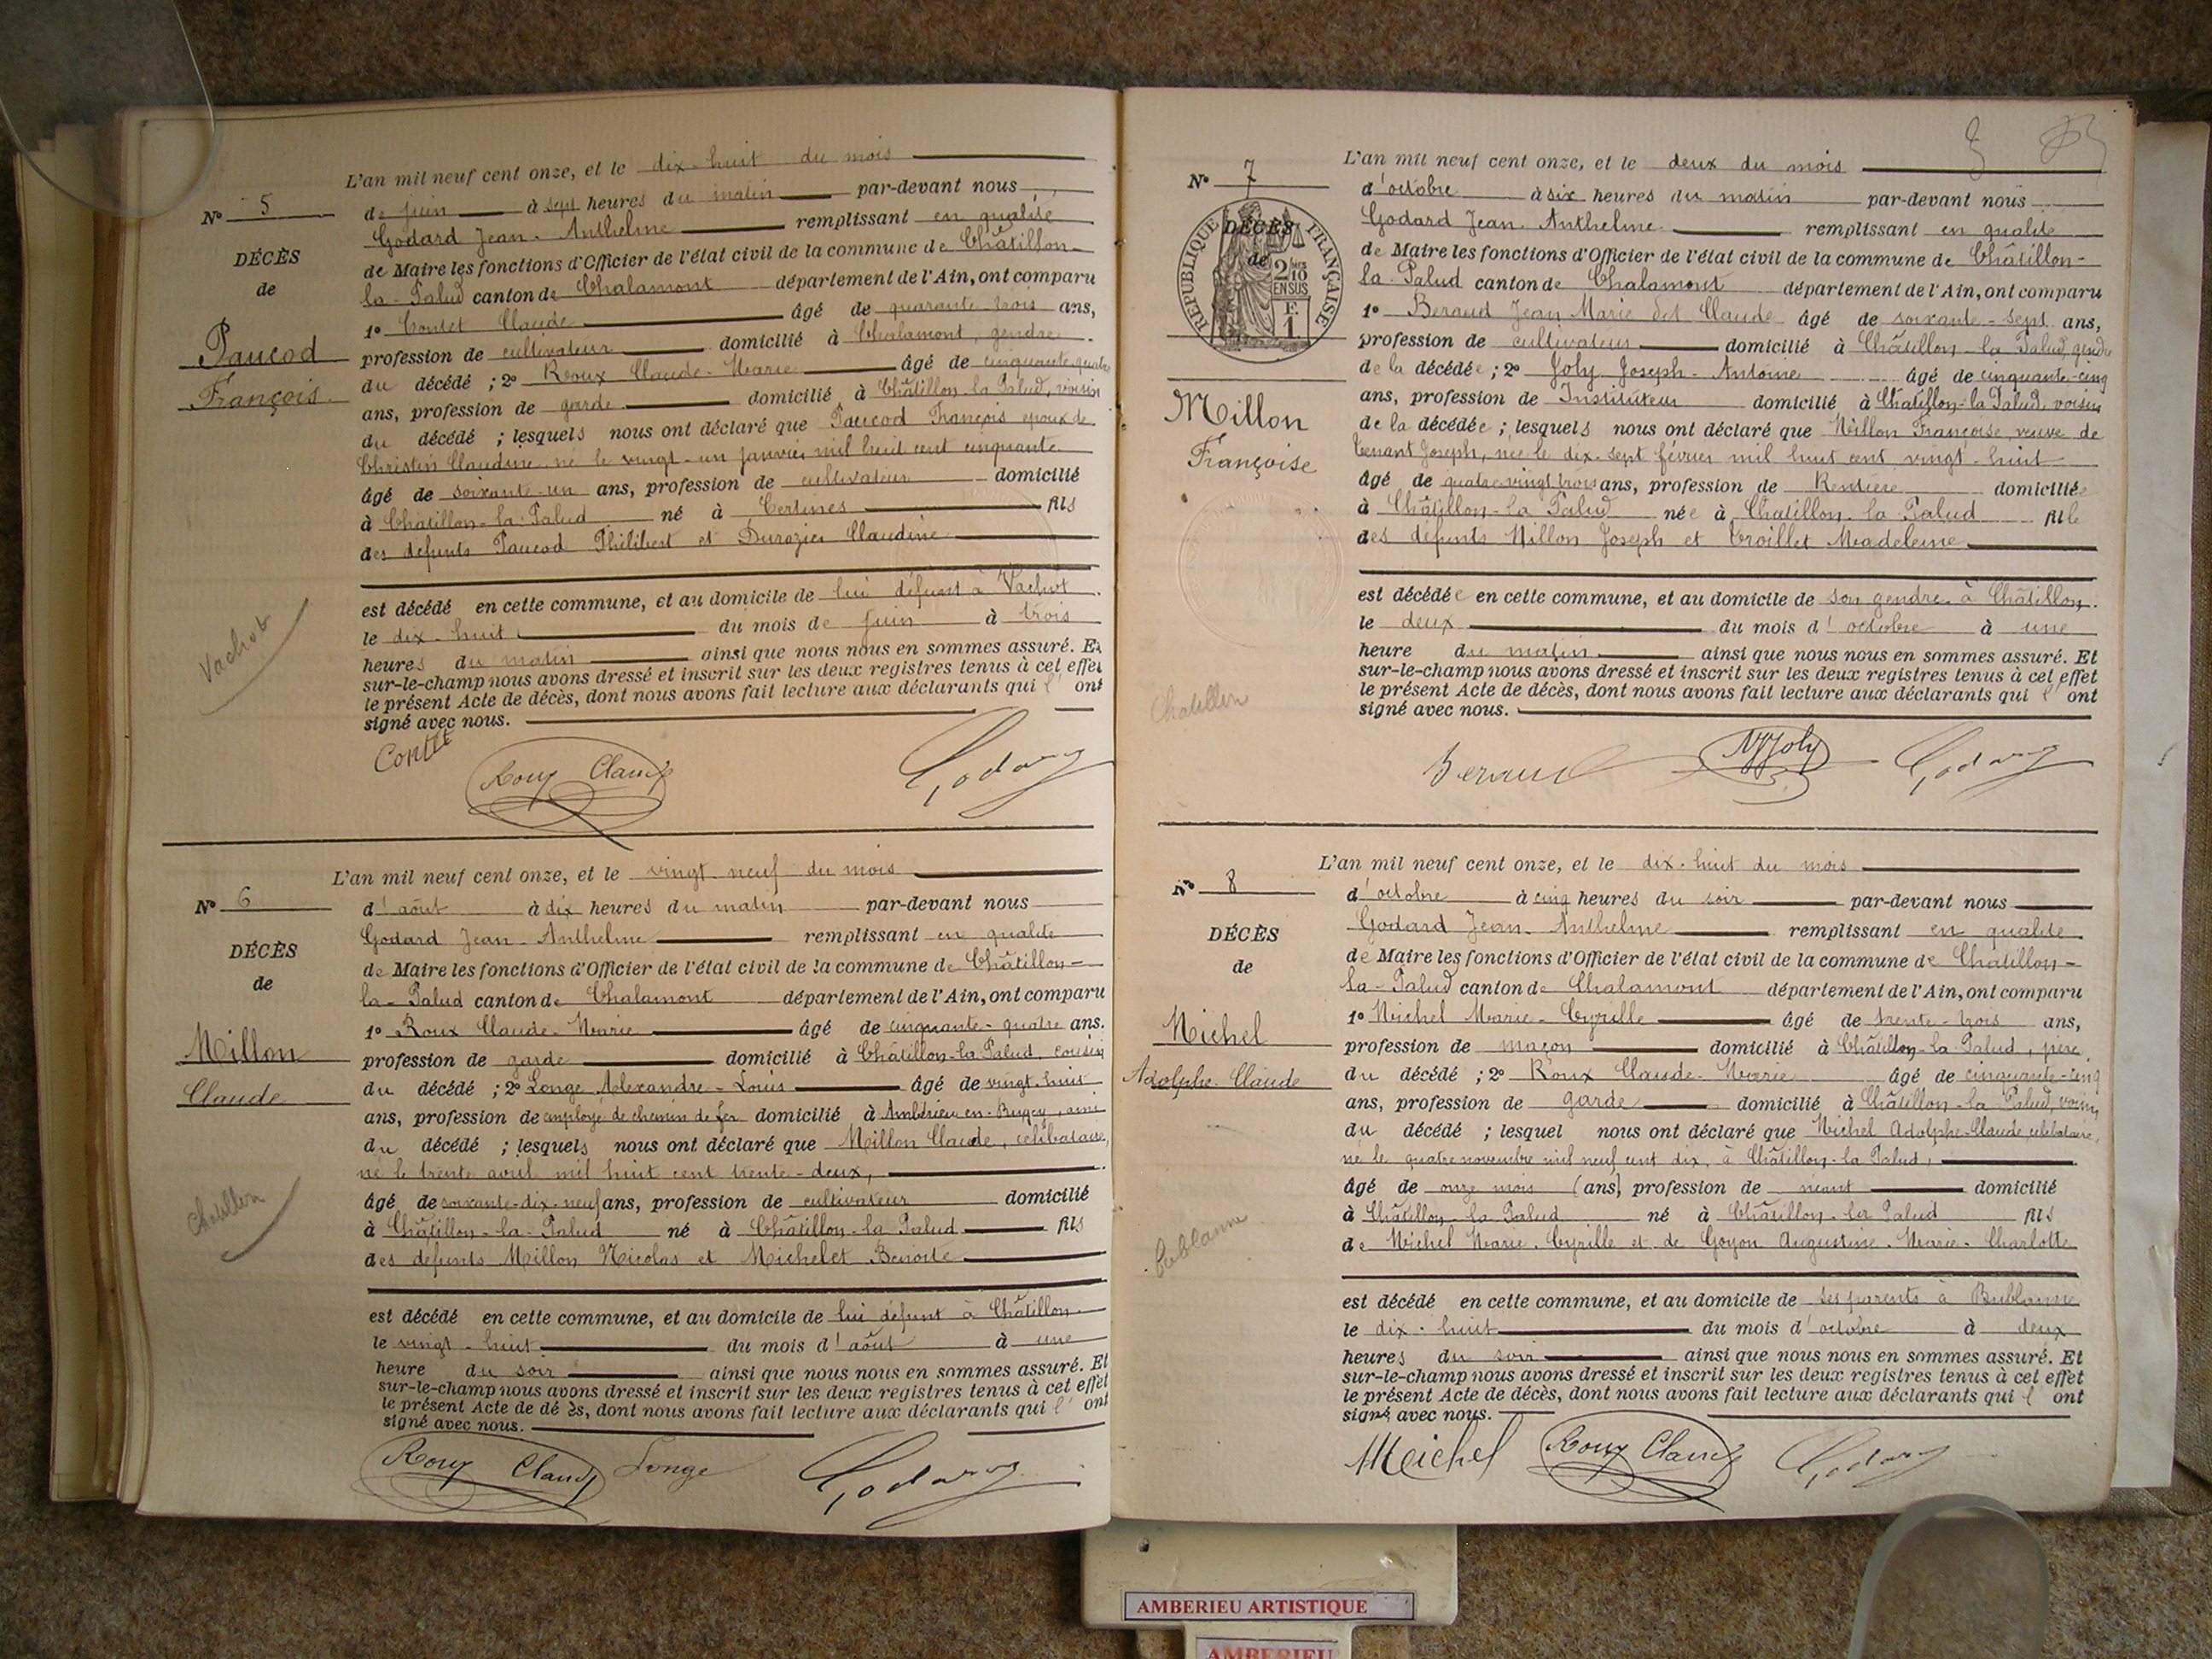 L'an mil neuf cent onze, et le dix-huit du mois
Nº 5
de juin à sept heures du matin par-devant nous
Godard Jean-Anthelme remplissant en qualité
DÉCÈS
de Maire les fonctions d'Officier de l'état civil de la commune de Châtillon-
de
la-Palud canton de Chalamont département de l'Ain, ont comparu
1º Contet Claude âgé de quarante-trois ans,
Paucod
profession de cultivateur domicilié à Chalamont, gendre
François
du décédé ; 2º Roux Claude-Marie âgé de cinquante-quatre
ans, profession de garde domicilié à Châtillon-la-Palud, voisin
du décédé ; lesquels nous ont déclaré que Paucod François époux de
Christin Claudine né le vingt-un janvier mil huit cent cinquante
âgé de soixante-un ans, profession de cultivateur domicilié
à Châtillon-la-Palud né à Certines fils
des défunts Paucod Philibert et Durozier Claudine
est décédé en cette commune, et au domicile de lui défunt à Vachot
Vachot
le dix-huit du mois de juin à trois
heures du matin ainsi que nous nous en sommes assuré. Et
sur-le-champ nous avons dressé et inscrit sur les deux registres tenus à cet effet
le présent Acte de décès, dont nous avons fait lecture aux déclarants qui l' ont
signé avec nous.
Contet Roux Claude Godard
L'an mil neuf cent onze, et le vingt-neuf du mois
Nº 6
d'août à dix heures du matin par-devant nous
Godard Jean-Anthelme remplissant en qualité
DÉCÈS
de Maire les fonctions d'Officier de l'état civil de la commune de Châtillon-
de
la-Palud canton de Chalamont département de l'Ain, ont comparu
1º Roux Claude-Marie âgé de cinquante-quatre ans.
Millon
profession de garde domicilié à Châtillon-la-Palud, cousin
Claude
du décédé ; 2º Longe Alexandre-Louis âgé de vingt-huit
ans, profession de employé de chemin de fer domicilié à Ambérieu-en-Bugey, ami
du décédé ; lesquels nous ont déclaré que Millon Claude, célibataire,
né le trente avril mil huit cent trente-deux,
âgé de soixante-dix-neuf ans, profession de cultivateur domicilié
Chatillon
à Châtillon-la-Palud né à Châtillon-la-Palud fils
des défunts Millon Nicolas et Michelet Benoite
est décédé en cette commune, et au domicile de lui défunt à Châtillon
le vingt-huit du mois d'août à une
heure du soir ainsi que nous nous en sommes assuré. Et
sur-le-champ nous avons dressé et inscrit sur les deux registres tenus à cet effet
le présent Acte de dé ès, dont nous avons fait lecture aux déclarants qui l' ont
signé avec nous.
Roux Claude Longe Godard
L'an mil neuf cent onze, et le deux du mois
Nº 7
d'octobre à six heures du matin par-devant nous
Godard Jean-Anthelme remplissant en qualité
DÉCÈS
de
RÉPUBLIQUE FRANÇAISE
2/10 EN SUS
F. 1
de Maire les fonctions d'Officier de l'état civil de la commune de Châtillon-
la-Palud canton de Chalamont département de l'Ain, ont comparu
1º Beraud Jean Marie dit Claude âgé de soixante-sept ans,
profession de cultivateur domicilié à Châtillon-la-Palud, gendre
de la décédée ; 2º Joly Joseph-Antoine âgé de cinquante-cinq
Millon
ans, profession de Instituteur domicilié à Châtillon-la-Palud, voisin
Françoise
de la décédée ; lesquels nous ont déclaré que Millon Françoise, veuve de
Tenant Joseph, née le dix-sept février mil huit cent vingt-huit
âgé de quatre-vingt trois ans, profession de Rentière domiciliée
à Châtillon-la-Palud née à Châtillon-la-Palud fille
des défunts Millon Joseph et Troillet Madeleine
est décédée en cette commune, et au domicile de son gendre à Châtillon.
le deux du mois d'octobre à une
heure du matin ainsi que nous nous en sommes assuré. Et
sur-le-champ nous avons dressé et inscrit sur les deux registres tenus à cet effet
Chatillon
le présent Acte de décès, dont nous avons fait lecture aux déclarants qui l' ont
signé avec nous.
Beraud Joly Godard
L'an mil neuf cent onze, et le dix-huit du mois
Nº 8
d'octobre à cinq heures du soir par-devant nous
Godard Jean-Anthelme remplissant en qualité
DÉCÈS
de Maire les fonctions d'Officier de l'état civil de la commune de Châtillon-
de
la-Palud canton de Chalamont département de l'Ain, ont comparu
1º Michel Marie-Cyrille âgé de trente-trois ans,
Michel
profession de maçon domicilié à Châtillon-la-Palud, père
Adolphe-Claude
du décédé ; 2º Roux Claude-Marie âgé de cinquante-cinq
ans, profession de garde domicilié à Châtillon-la-Palud, voisin
du décédé ; lesquel nous ont déclaré que Michel Adolphe-Claude, célibataire,
né le quatre novembre mil neuf cent dix, à Châtillon-la-Palud,
âgé de onze mois (ans) profession de néant domicilié
à Châtillon-la-Palud né à Châtillon-la-Palud fils
Bublanne
de Michel Marie-Cyrille et de Goyon Augustine-Marie-Charlotte
est décédé en cette commune, et au domicile de ses parents à Bublanne
le dix-huit du mois d'octobre à deux
heures du soir ainsi que nous nous en sommes assuré. Et
sur-le-champ nous avons dressé et inscrit sur les deux registres tenus à cet effet
le présent Acte de décès, dont nous avons fait lecture aux déclarants qui l' ont
signé avec nous.
Meichel Roux Claude Godard
AMBERIEU ARTISTIQUE
AMBERIEU